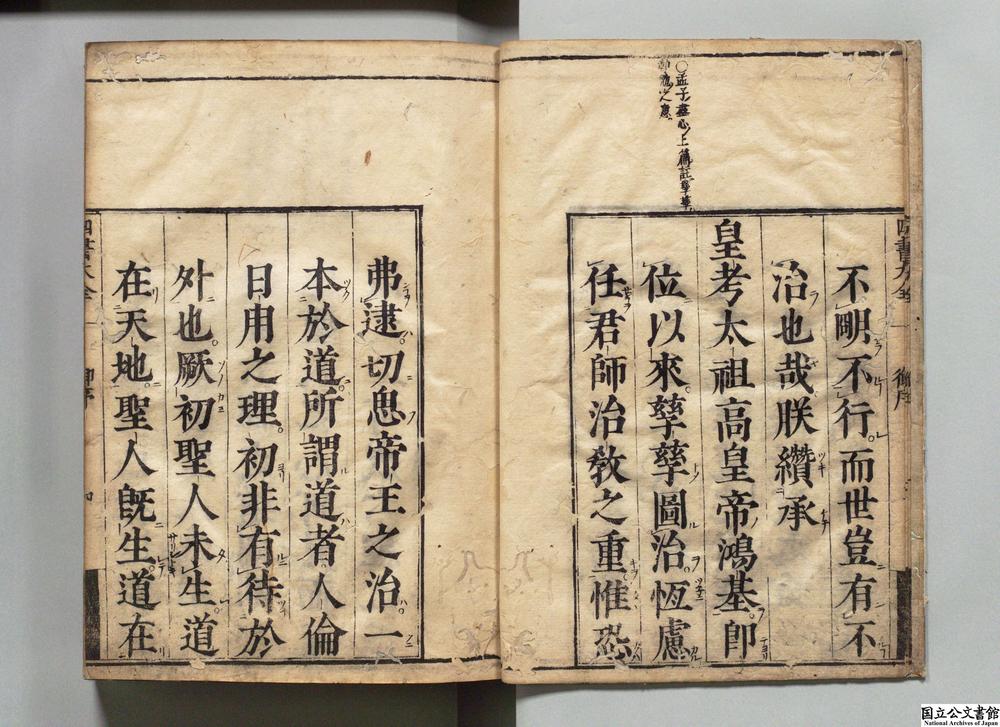 不明不行。而世豈有不
治也哉朕纘承
皇考太祖高皇帝鴻基即
位以來。孳孳圖治。恆慮
任君師治教之重惟恐
弗逮。切思帝王之治。一
本於道。所謂道者人倫
日用之理。初非有待於
外也。厥初聖人未生道
在天地。聖人既生。道在
四書大全
御序
国立公文書館
National Archives of Japan